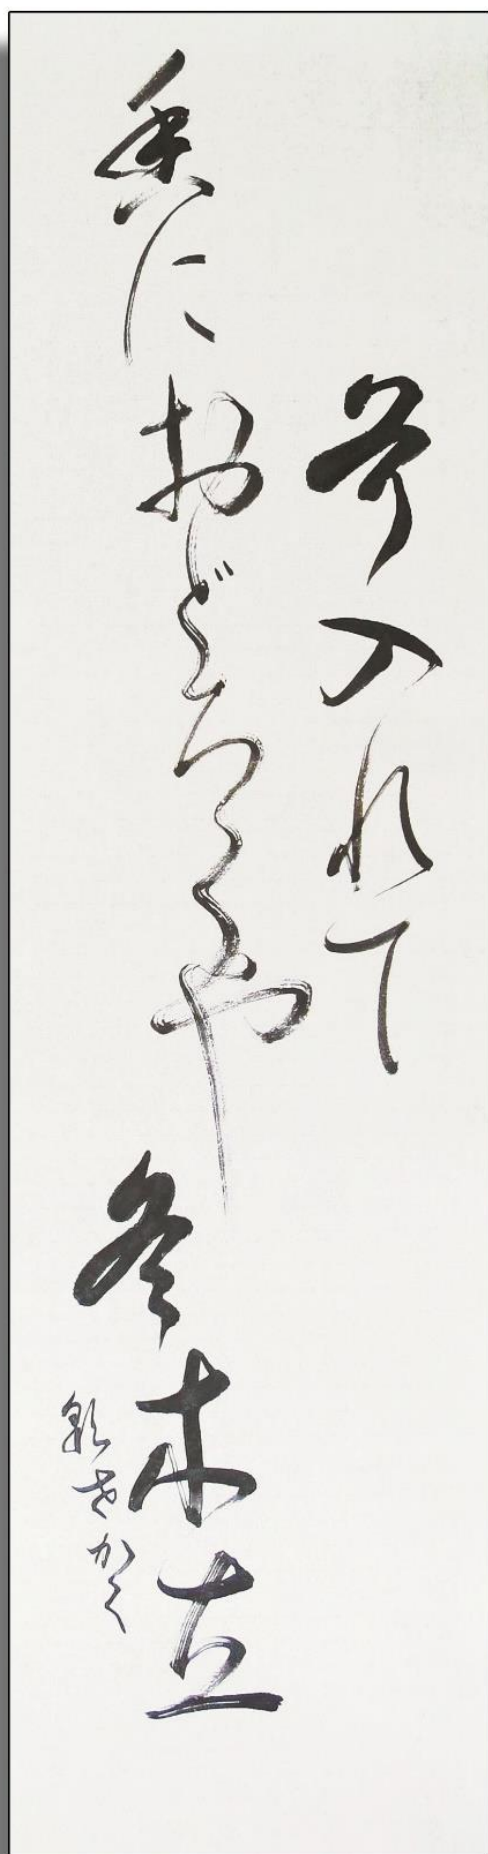 斧入れて
香におどろくや冬木立
かく